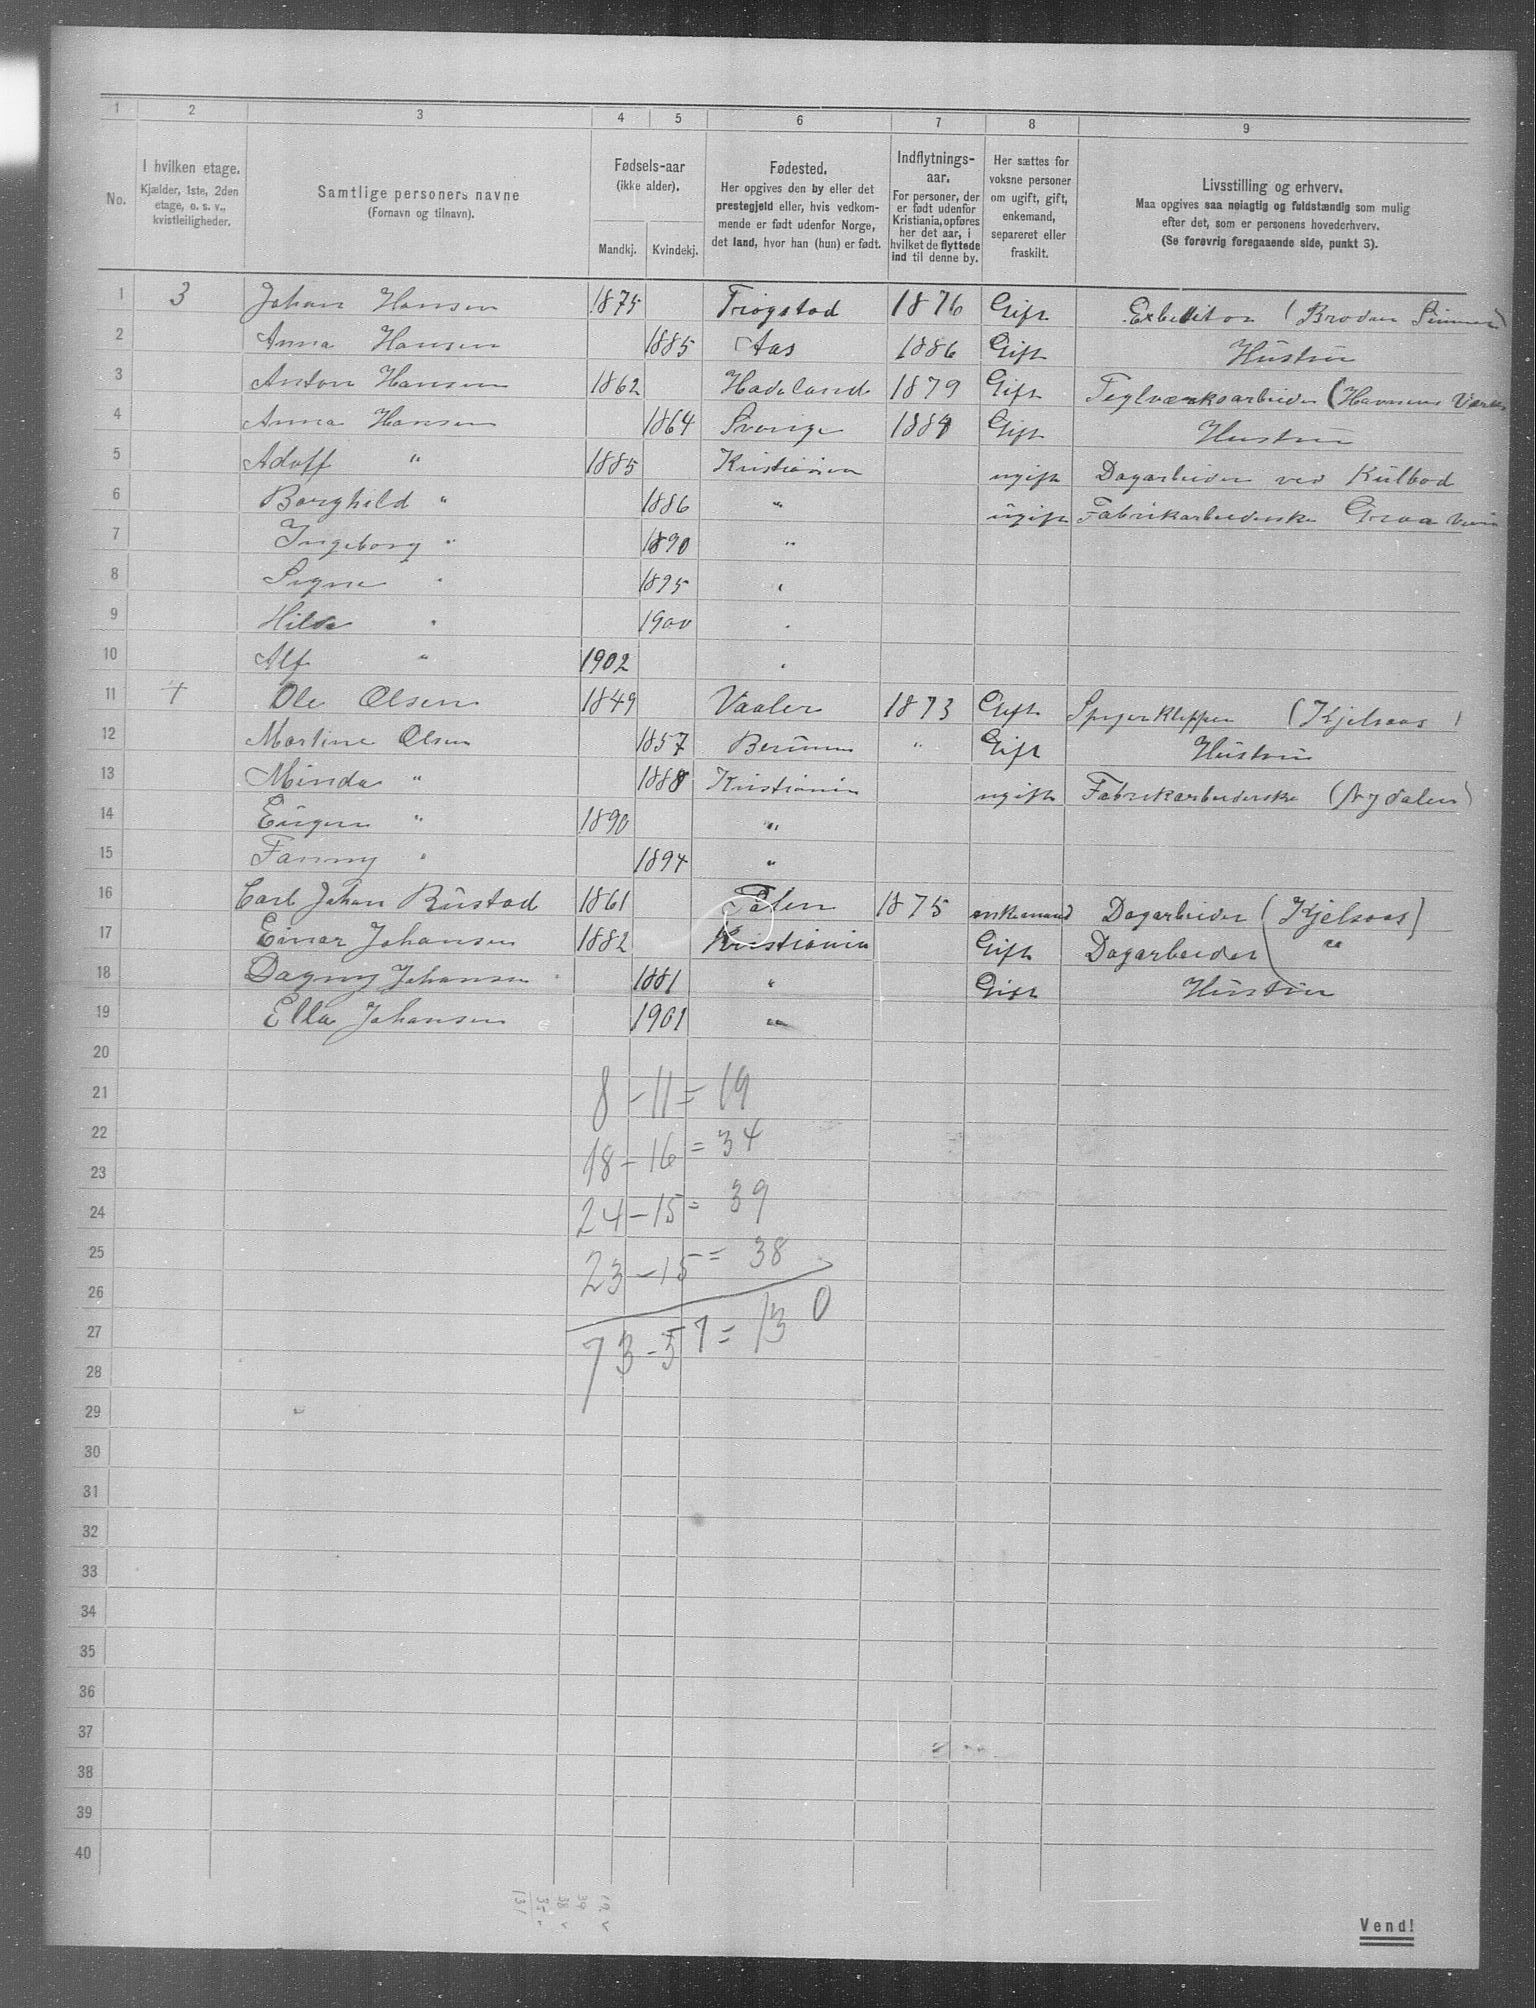 1 2 3 4 5 6 7 8 9
No.
I hvilken etage.
Kjælder, 1ste, 2den
etage, o. s. v.,
kvistleiligheder.
Samtlige personers navne
(Fornavn og tilnavn).
Fødsels-aar
(ikke alder).
Mandkj. Kvindekj.
Fødested.
Her opgives den by eller det
prestegjeld eller, hvis vedkom-
mende er født udenfor Norge,
det land, hvor han (hun) er født.
Indflytnings-
aar.
For personer, der
er født udenfor
Kristiania, opføres
her det aar, i
hvilket de flyttede
ind til denne by.
Her sættes for
voksne personer
om ugift, gift,
enkemand,
separeret eller
fraskilt.
Livsstilling og erhverv.
Maa opgives saa nøiagtig og fuldstændig som mulig
efter det, som er personens hovederhverv.
(Se forøvrig foregaaende side, punkt 3).
1 3 Johan Hansen 1875 Trøgstad 1876 Gift (Brødrene
2 Anna Hansen 1885 Aas 1886 Gift Hustru
3 Anton Hansen 1862 Hadeland 1879 Gift Teglværksarbeider (
4 Anna Hansen 1864 Sverige 1884 Gift Hustru
5 Adolf " 1885 Kristiania ugift Dagarbeider ved Kulbod
6 Borghild " 1886 " ugift Fabrikarbeiderske
7 Ingeborg " 1890 "
8 Signe " 1895 "
9 Hilda " 1900 "
10 Alf " 1902 "
11 4 Ole Olsen 1849 Vaaler 1873 Gift (Kjelsaas)
12 Martine Olsen 1857 Berum " Gift Hustru
13 Minda " 1888 Kristiania ugift Fabrikarbeiderske (Nydalen)
14 Eugen " 1890 "
15 Fanny " 1894 "
16 Carl Johan Rustad 1861 1875 enkemand Dagarbeider (Kjelsaas)
17 Einar Johansen 1882 Kristiania Gift Dagarbeider "
18 Dagny Johansen 1881 " Gift Hustru
19 Ella Johansen 1901 "
20
21 8 - 11 = 19
22 18 - 16 = 34
23
24 24 - 15 = 39
25 23 - 15 = 38
26
27 73 - 57 = 130
28
29
30
31
32
33
34
35
36
37
38
39
40
19 v
39
38 v
35 v
131
Vend!